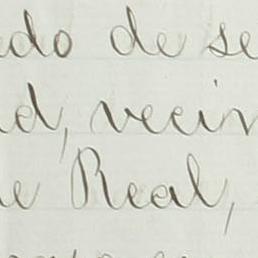 ado de se
ad, vecin
e Real,